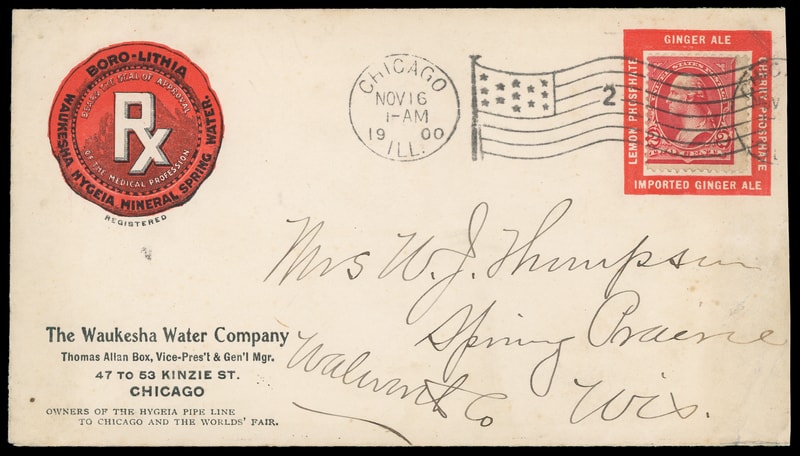 BORO-LITHIA
WAUKESHA HYGEIA MINERAL SPRING WATER.
BEARS THE SEAL OF APPROVAL
Rx
OF THE MEDICAL PROFESSION
REGISTERED
CHICAGO
NOV 16
1-AM
19 00
ILL.
2
GINGER ALE
LEMON PHOSPHATE
CHERRY PHOSPHATE
2 2
IMPORTED GINGER ALE
Mrs W. J. Thompson
Spring Prairie
Walworth Co Wis.
The Waukesha Water Company
Thomas Allan Box, Vice-Pres't & Gen'l Mgr.
47 TO 53 KINZIE ST.
CHICAGO
OWNERS OF THE HYGEIA PIPE LINE
TO CHICAGO AND THE WORLDS' FAIR.